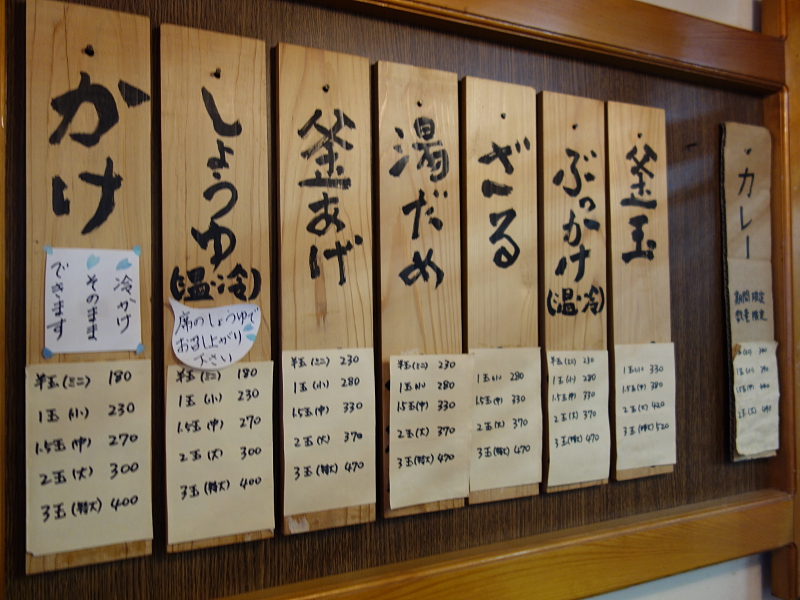 かけ
冷かけ
そのまま
できます
半玉(ミニ) 180
1玉(小) 230
1.5玉(中) 270
2玉(大) 300
3玉(特大) 400
しょうゆ
(温・冷)
席のしょうゆで
お召し上がり
下さい
半玉(ミニ) 180
1玉(小) 230
1.5玉(中) 270
2玉(大) 300
3玉(特大) 400
釜あげ
半玉(ミニ) 230
1玉(小) 280
1.5玉(中) 330
2玉(大) 370
3玉(特大) 470
湯だめ
半玉(ミニ) 230
1玉(小) 280
1.5玉(中) 330
2玉(大) 370
3玉(特大) 470
ざる
1玉(小) 280
1.5玉(中) 330
2玉(大) 370
3玉(特大) 470
ぶっかけ
(温・冷)
半玉(ミニ) 230
1玉(小) 280
1.5玉(中) 330
2玉(大) 370
3玉(特大) 470
釜玉
1玉(小) 330
1.5玉(中) 380
2玉(大) 420
3玉(特大) 520
カレー
期間限定
数量限定
半玉(ミニ)
1玉(小)
1.5玉(中)
2玉(大)